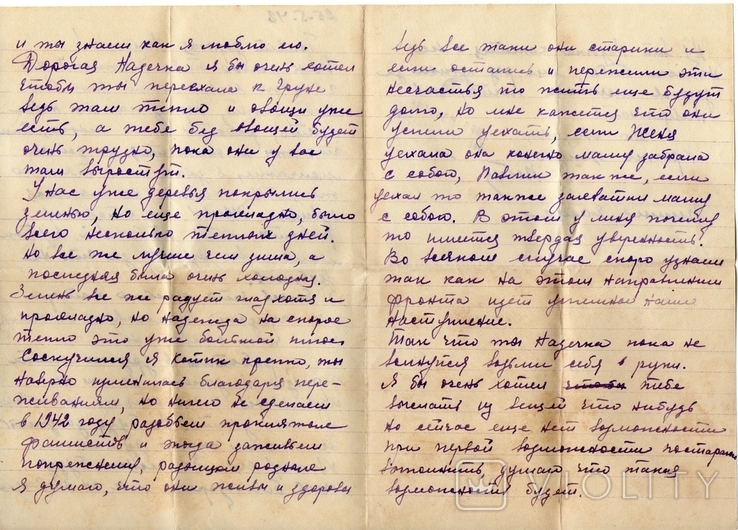 и ты знаеш как я люблю его.
Дорогая Надечка я бы очень хотел
чтобы ты переехала к Груне
ведь там тепло и овощи уже
есть, а тебе без овощей будет
очень трудно, пока они у вас
там вырастут.
У нас уже деревья покрылись
зеленью, но еще прохладно, было
всего несколько теплых дней.
Но все же лучше чем зима, а
последняя была очень холодная.
Зелень все же радует глаз хотя и
прохладно, но надежда на скорое
тепло это уже большой плюс
Соскучился я котик крепко, ты
наверно изменилась благодаря пере-
живаниям, но ничего не сделаеш
в 1942 году разобьем проклятых
фашистов и тогда заживем
попрежнему, радоницем родное
Я думаю, что они живы и здоровы
ведь все таки они старики и
если остались и пережили эти
несчастья то жить еще будут
долго, но мне кажется что они
успели уехать, если Женя
уехала она конечно мамы забрала
с собой, Павлик так же, если
уехал то также захватил мамы
с собою. В этом у меня почему
то имеется твердая уверенность.
Во всяком случае скоро узнаем
так как на этом направлении
фронта идет успешное наше
наступление.
Так что ты Надечка пока не
волнуйся возьми себя в руки.
Я бы очень хотел чтобы тебе
выслать из вещей что нибудь
но сейчас еще нет возможности
при первой возможности постараюсь
выслать, думаю что такая
возможность будет.
VIOLITY